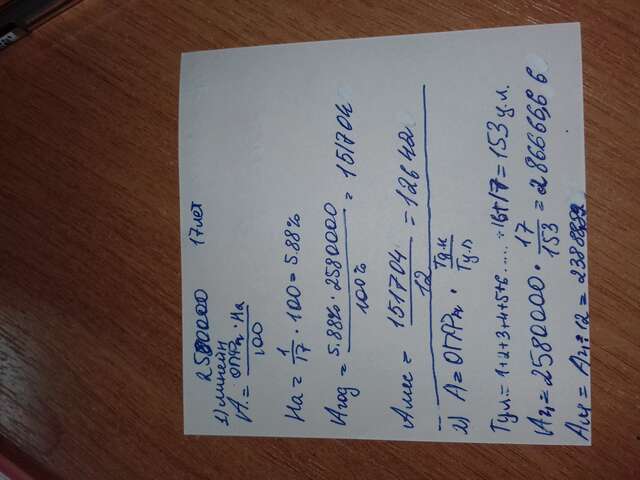 2580000 17лет
1) линейн
A = ОПФп · На / 100
На = 1/17 · 100 = 5.88%
Aгод = 5.88% · 2580000 / 100% = 151704
Aмес = 151704 / 12 = 12642
2) A = ОПФп · Tч.и / Tч.л
Tч.л. = 1+2+3+4+5+6..... +16+17 = 153 ч.л.
Aч = 2580000 · 17/153 = 286666,6 6
Aм = Aч : 12 =